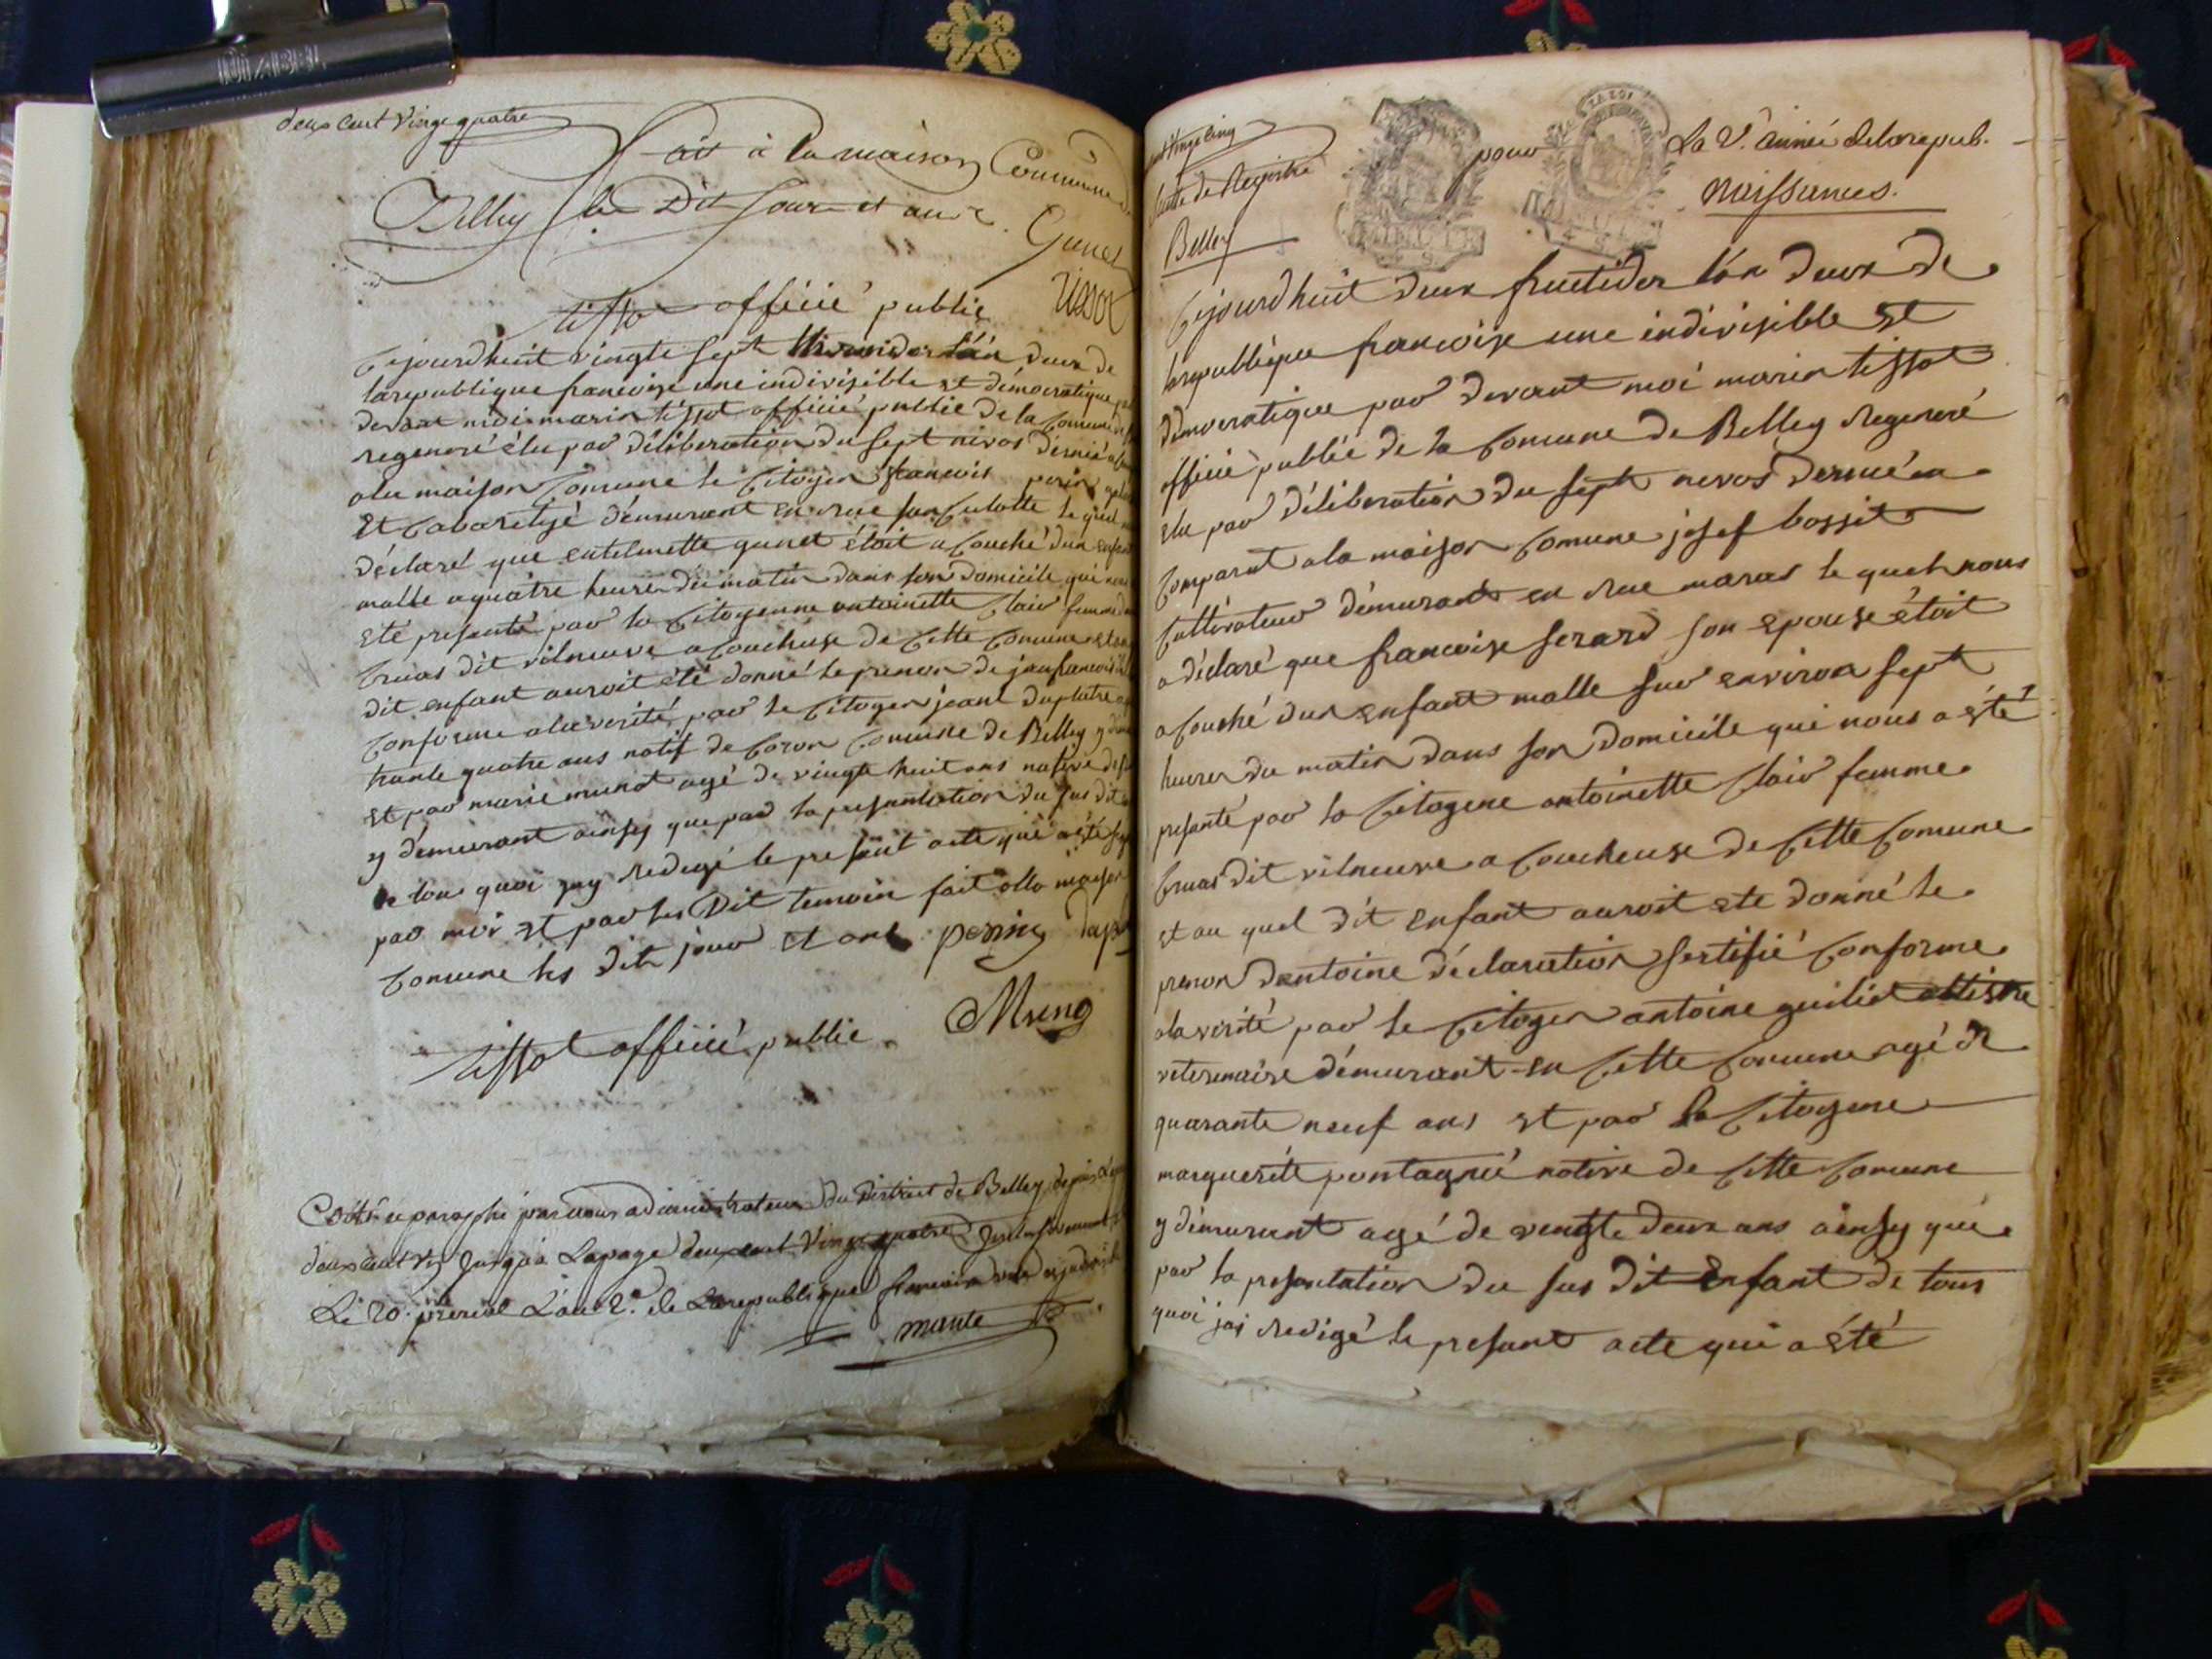 deux cent vingt quatre
fait à la maison Commune
Belley les Dit Jour et an
Gunet
tissot officié public
Cejourdhuit vingte sept l'an deux de
larepublique francoise une indivisible et démocratique
devant moi marin tissot officié public de la Comune de
regeneré élu par déliberation du sept nivos dernié
ala maison Comune le Citoyen francois perin
Et Cabaretyé démurant en rue san Culotte le quel
déclaré que gunet étoit a Couché dun enfant
malle a quatre heures du matin dans son domicile qui nous
eté presenté par la Citoyenne antoinette Clair femme
bruas dit vilneuve a Coucheuse de Cette Comune
dit enfant auroit eté donné le prenon de jean francois
Conforme ala verité par le Citoyen jeant duplatre
trante quatre ans natif de Coron Comune de Belley y
Et par marie munet agé de vingte huit ans native de
y demeurant ainsy que par la presentation du sus dit
de tou quoi jay redigé le present acte qui a été
par moi et par les Dit temoin fait alla maison
Comune les dit jour et ant perin
tissot officié public
Coté et paraphé par nous administrateur du District de Belley depuis
deux cent un jusqu'à la page deux cent vingt quatre
Le 20 prerial L'an 2e de la republique francoise une
mante
La 2e année de la repub.
pour
Suitte de Registre
naissances.
Belley
Cejourdhuit deux fructidor l'an deux de
larepublique francoise une indivisible et
démocratique par devant moi marin tissot
officié publié de la Comune de Belley regeneré
elu par déliberation du sept nivos dernié a
Comparut ala maison Comune josef bossit
Cultivateur démurant en rue maras le quel nous
a déclaré que francoise serard son epouse étoit
a Couché dun enfant malle sur environ sept
heures du matin dans son domicile qui nous a été
presenté par la Citoyene antoinette Clair femme
bruas dit vilneuve a Coucheuse de Cette Comune
et au quel dit enfant auroit ete donné le
prenon dantoine déclaration sertifié Conforme
ala verité par le Citoyen antoine guiliet
veterinaire démurant en Cette Comune agé de
quarante neuf ans et par la Citoyene
marguerite pontagnié native de Cette Comune
y démurant agé de vingte deux ans ainsy que
par la presentation du sus dit Enfant de tous
quoi jai redigé le present acte qui a été